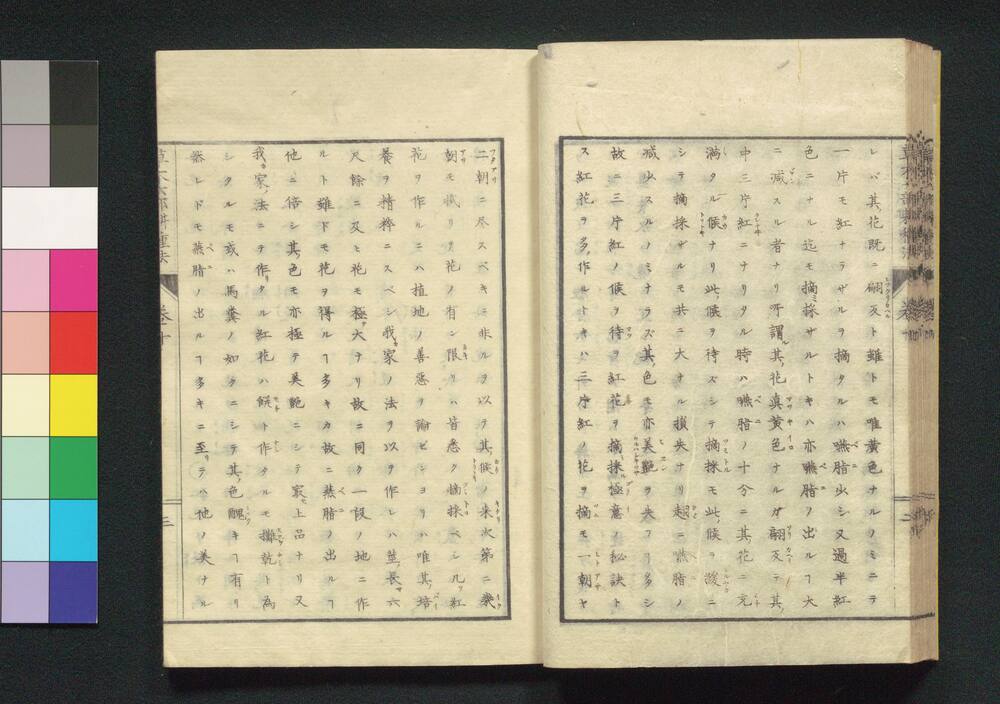 レバ其花既ニ翩反ト雖トモ唯黄色ナルノミニテ
一片モ紅ナラザルヲ摘タルハ臙脂少シ又過半紅
色ニナル迄モ摘採ザルトキハ亦臙脂ノ出ルヿ大
ニ減スル者ナリ所謂其花真黄色ナルガ翩反テ其
中三片紅ニナリタル時ハ臙脂ノ十分ニ其花ニ充
満タル候ナリ此候ヲ待ズシテ摘採モ此候ヲ後ニ
シテ摘採ザルモ共ニ大ナル損失ナリ起ニ臙脂ノ
減少スルノミナラズ其色モ亦美艶ヲ失フヿ多シ
故ニ三片紅ノ候ヲ待ヲ紅花ヲ摘採極意ノ秘訣ト
ス紅花ヲ多作ルトキハ三片紅ノ花ヲ摘モ一朝ヤ
二朝ニ尽スベキニ非ルヲ以テ其候ノ来次第ニ幾
朝モ撰リテ花ノ有ン限リハ皆悉ク摘採ベシ凡紅
花ヲ作ルニハ植地ノ善悪ヲ論ゼンヨリハ唯其培
養ヲ精粹ニスベシ我家ノ法ヲ以テ作レハ茎長六
尺餘ニ及ヒ花モ極大ナリ故ニ同ク一段ノ地ニ作
ルト雖ドモ花ヲ得ルヿ多キカ故ニ臙脂ノ出ルヿ
他ニ倍シ其色モ亦極テ美艶ニシテ最上品ナリ又
我家法ニテ作リタル紅花ハ餅ト作タルモ攤乾ト為
シタルモ或ハ馬糞ノ如クニシテ其色醜キヿ有リ
然レドモ臙脂ノ出ルヿ多キニ至リテハ他ノ美ナル